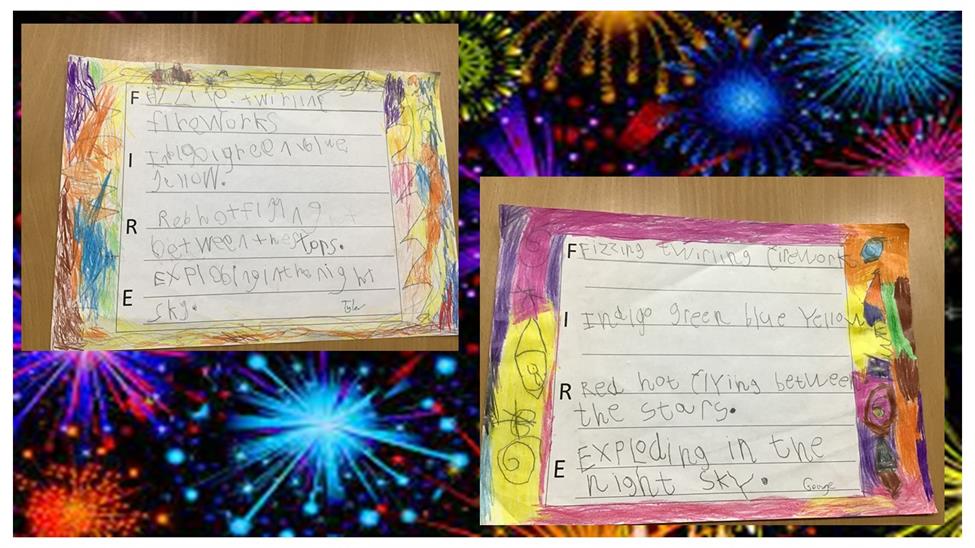 F Fizzing twirling
fireworks
I Indigo green blue
yellow.
R Red hot flying
between the stops.
E Exploding in the night
sky.
Tyler
F Fizzing twirling firework
I Indigo green blue Yellow
R Red hot flying between
the stars.
E Exploding in the
night sky.
George